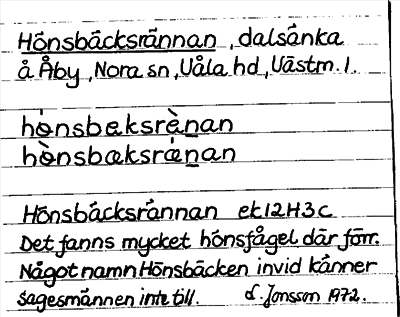 Hönsbäcksrännan, dalsänka
å Åby, Nora sn, Våla hd, Västm. l.
hö̀nsbɐksrè̱ṉan
hö̀nsbɑksrǽṉan
Hönsbäcksrännan ek 12H3c
Det fanns mycket hönsfågel där förr.
Något namn Hönsbäcken invid känner
sagesmännen inte till. L. Jonsson 1972.